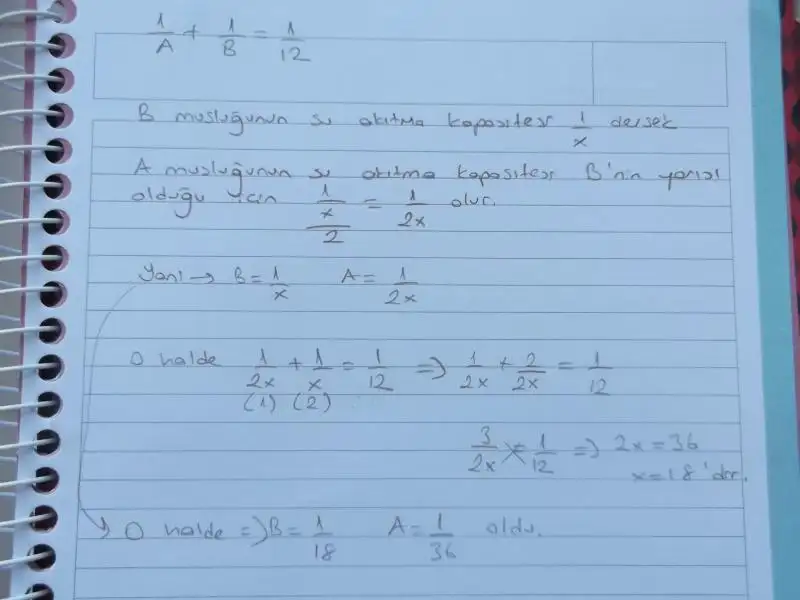 1/A + 1/B = 1/12
B musluğunun su akıtma kapasitesi 1/x dersek
A musluğunun su akıtma kapasitesi B'nin yarısı
olduğu için (1/x)/2 = 1/2x olur.
Yani → B = 1/x A = 1/2x
O halde 1/2x + 1/x = 1/12 ⇒ 1/2x + 2/2x = 1/12
(1) (2)
3/2x = 1/12 ⇒ 2x = 36
x = 18'dir.
O halde ⇒ B = 1/18 A = 1/36 oldu.